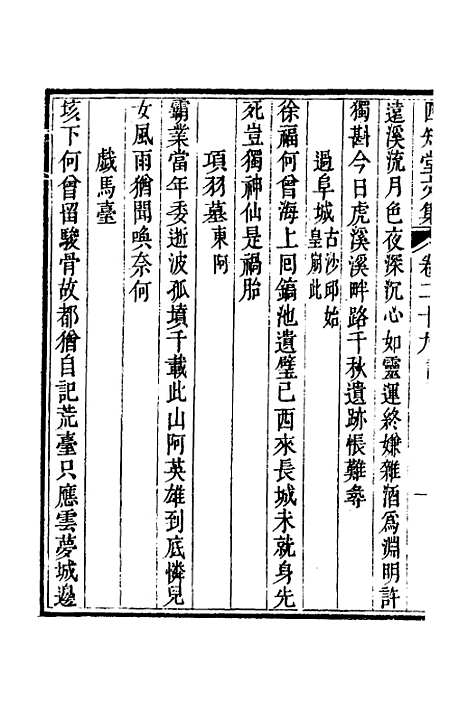 四知堂文集 卷二十九 詩 一
遠溪流月色夜深沉心如靈運終嫌雜酒為淵明許
獨斟今日虎溪溪畔路千秋遺跡悵難尋
過阜城古沙邱始皇崩此
徐福何曾海上回鎬池遺璧已西來長城未就身先
死豈獨神仙是禍胎
項羽墓東阿
霸業當年委逝波孤墳千載此山阿英雄到底憐兒
女風雨猶聞喚奈何
戲馬臺
垓下何曾留駿骨故都猶自記荒臺只應雲夢城邊